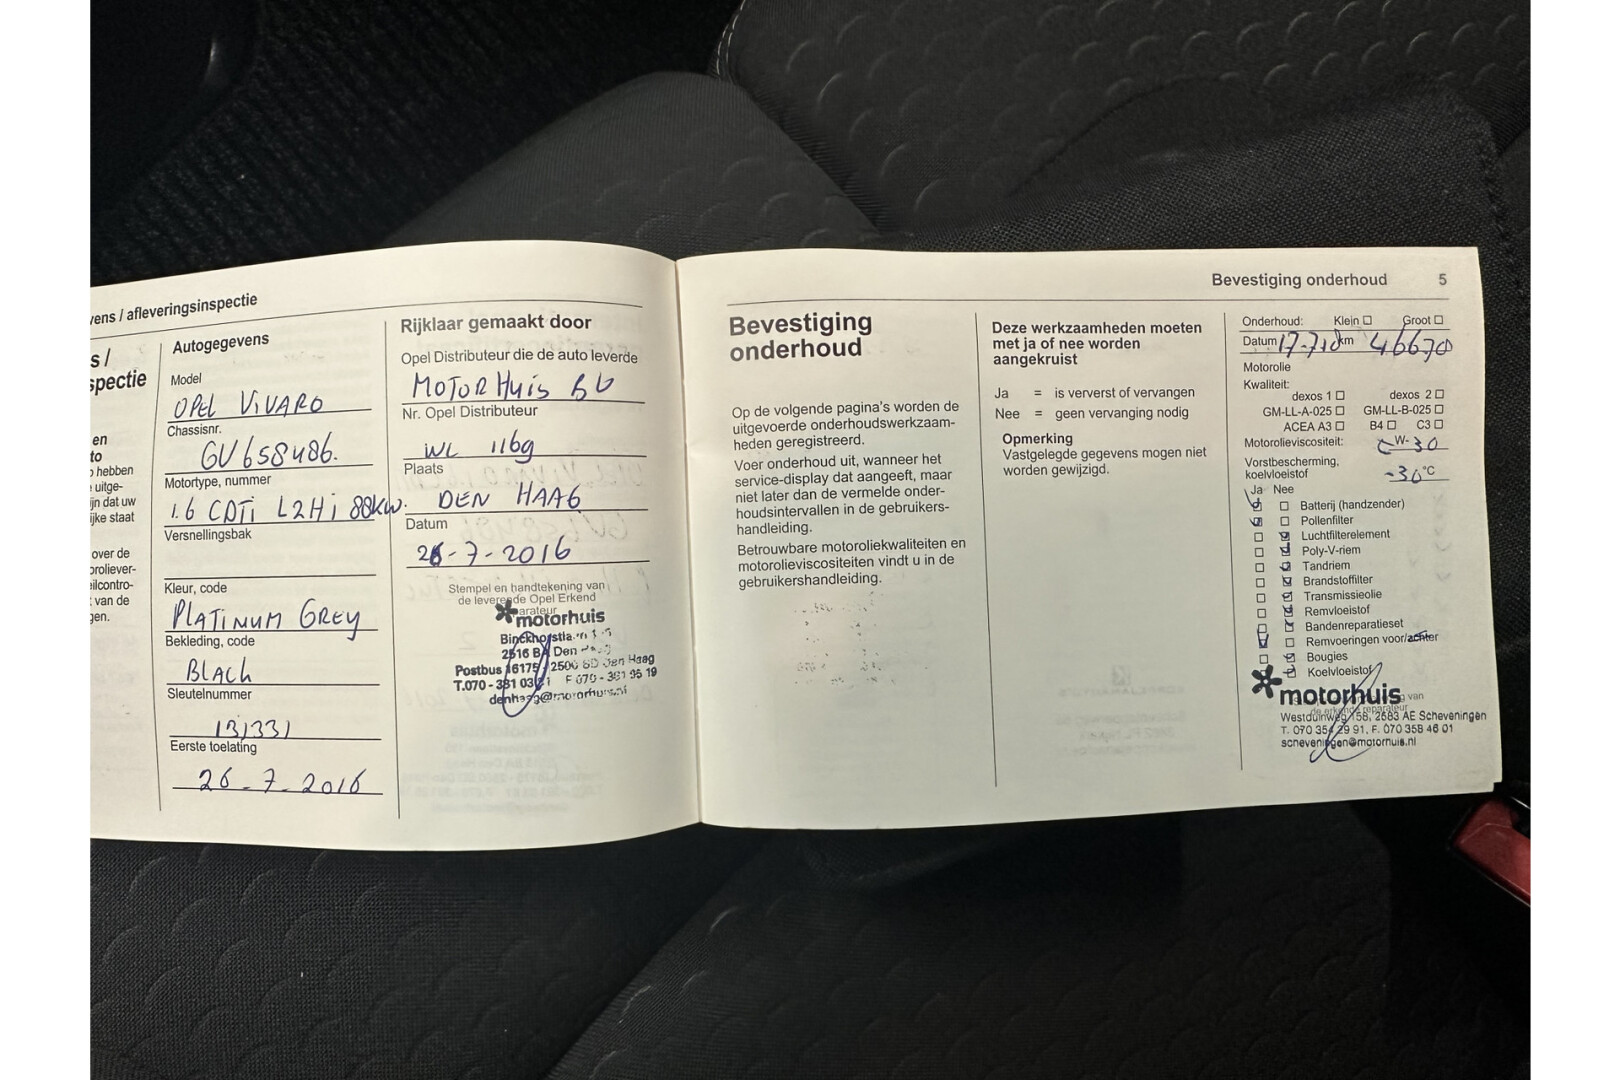 vens / afleveringsinspectie
s /
spectie
en
to
hebben
uitge-
ijn dat uw
ijke staat
over de
oroliever-
eilcontro-
van de
gen.
Autogegevens
Model
OPEL VIVARO
Chassisnr.
GV658486.
Motortype, nummer
1.6 CDTi L2Hi 88kw.
Versnellingsbak
Kleur, code
PLATINUM GREY
Bekleding, code
BLACH
Sleutelnummer
Eerste toelating
26-7-2016
Rijklaar gemaakt door
Opel Distributeur die de auto leverde
MOTORHUIS BV
Nr. Opel Distributeur
WL 1169
Plaats
DEN HAAG
Datum
26-7-2016
Stempel en handtekening van
de leverende Opel Erkend
arateur
motorhuis
2516 BA Den
Postbus 16175 2500 BD Den Haag
T.070 - 381 F 070 - 381 95 19
denhaag@motorhuis.nl
Bevestiging onderhoud 5
Bevestiging
onderhoud
Op de volgende pagina's worden de
uitgevoerde onderhoudswerkzaam-
heden geregistreerd.
Voer onderhoud uit, wanneer het
service-display dat aangeeft, maar
niet later dan de vermelde onder-
houdsintervallen in de gebruikers-
handleiding.
Betrouwbare motoroliekwaliteiten en
motorolieviscositeiten vindt u in de
gebruikershandleiding.
Deze werkzaamheden moeten
met ja of nee worden
aangekruist
Ja = is ververst of vervangen
Nee = geen vervanging nodig
Opmerking
Vastgelegde gegevens mogen niet
worden gewijzigd.
Onderhoud: Klein Groot
Datum 17-7-18 km 46670
Motorolie
Kwaliteit:
dexos 1 dexos 2
GM-LL-A-025 GM-LL-B-025
ACEA A3 B4 C3
Motorolieviscositeit: W-30
Vorstbescherming,
koelvloeistof -36°C
Ja Nee
Batterij (handzender)
Pollenfilter
Luchtfilterelement
Poly-V-riem
Tandriem
Brandstoffilter
Transmissieolie
Remvloeistof
Bandenreparatieset
Remvoeringen voor/achter
Bougies
Koelvloeistof
motorhuis van
de erkende reparateur
Westduinweg 158, 2583 AE Scheveningen
T. 070 354 29 91, F. 070 358 46 01
scheveningen@motorhuis.nl